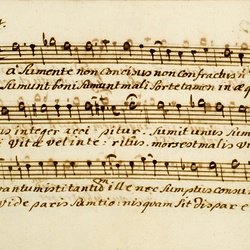 a Sumente non Concisus non Confractus n
Sumunt boni Sumunt mali Sorte tamen inæq
us integer acci pitur. Sumit unus Sum
Vitæ vel inte: ritus. mors est malis v
antum isti tantum ille nec Sumptus consum
vide paris Sumtio: nis quam Sit Dispar e